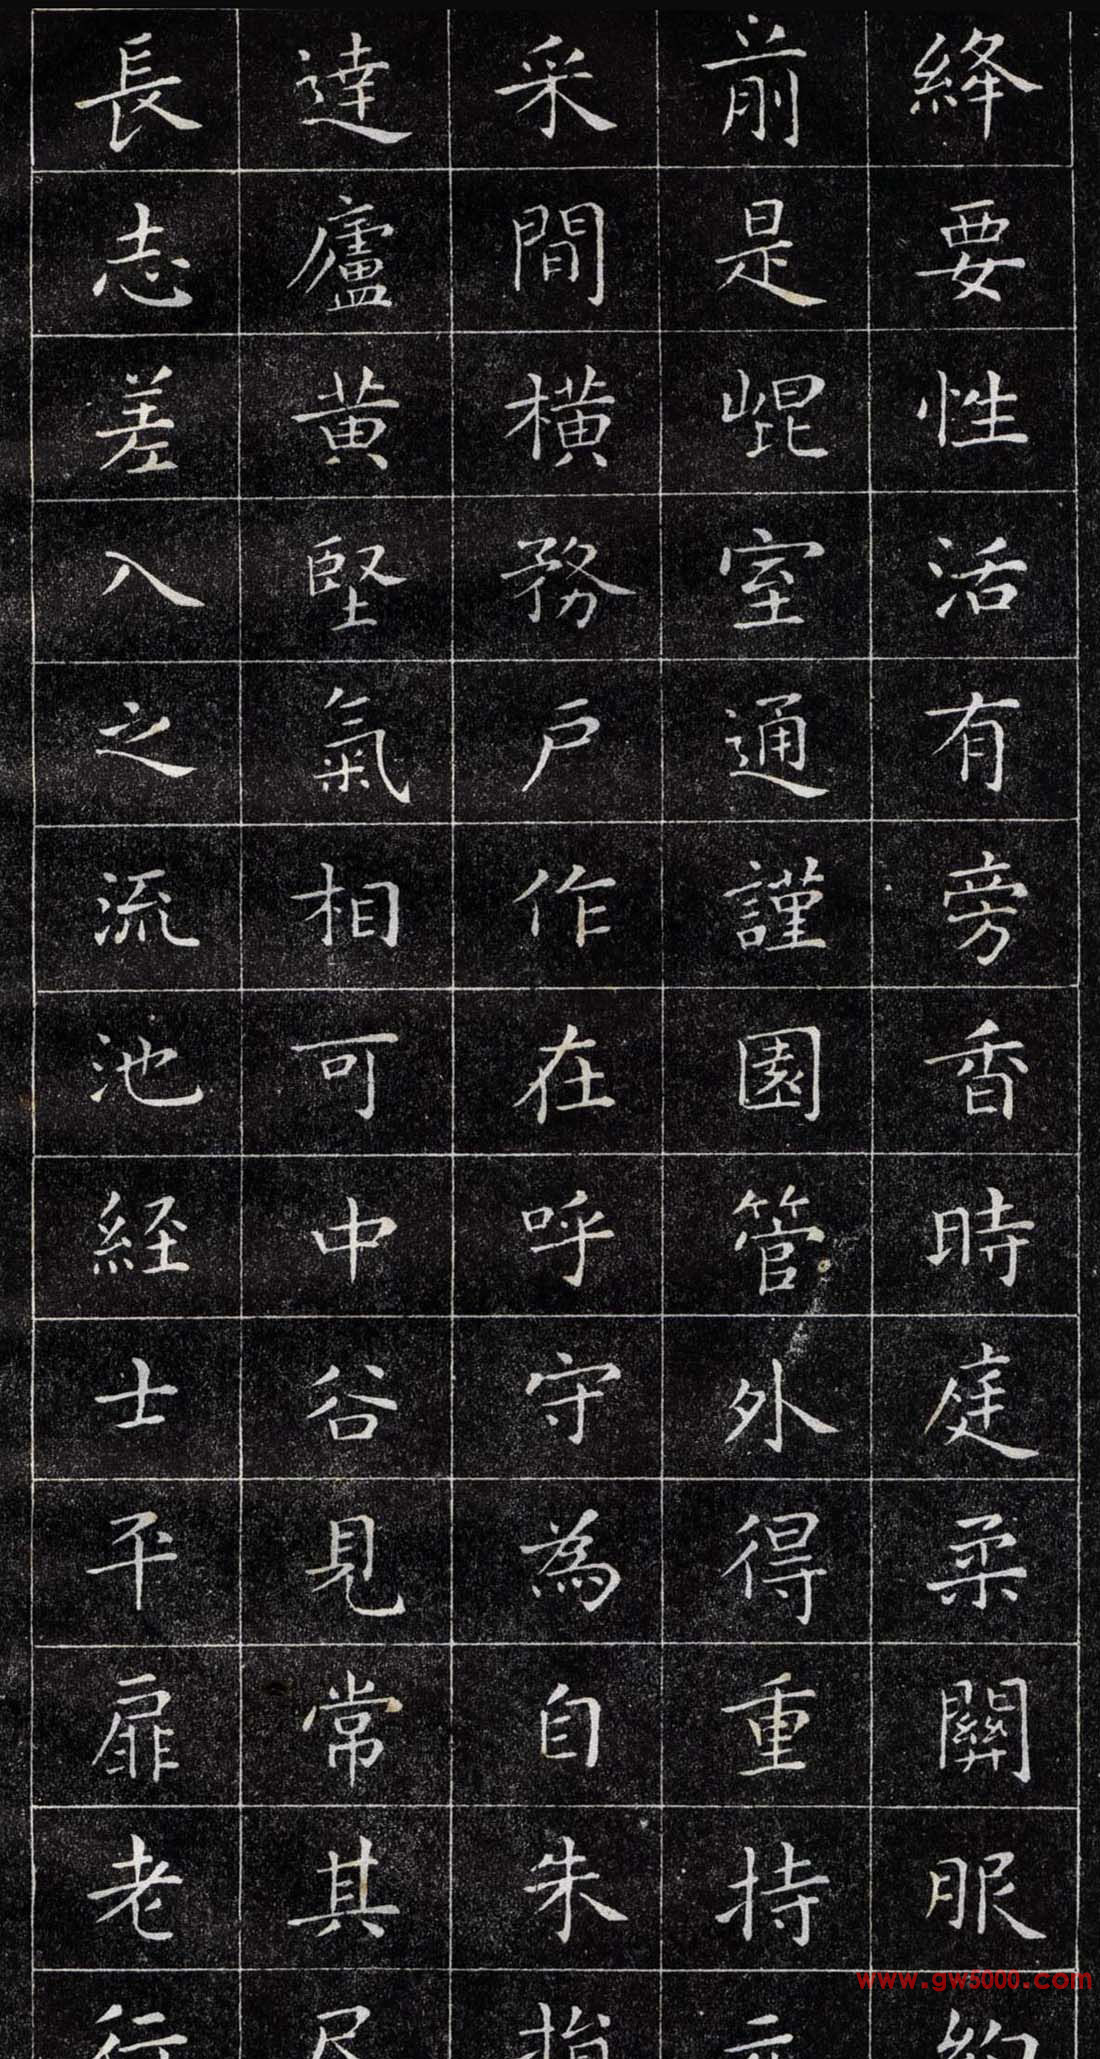 絳要性活有旁香時庭柔關服約
前是崐室通謹園管外得重持
采間橫務戶作在呼守為自朱指
達廬黄堅氣相可中谷見常其尺
長志差入之流池経士平扉老行
www.gw5000.com